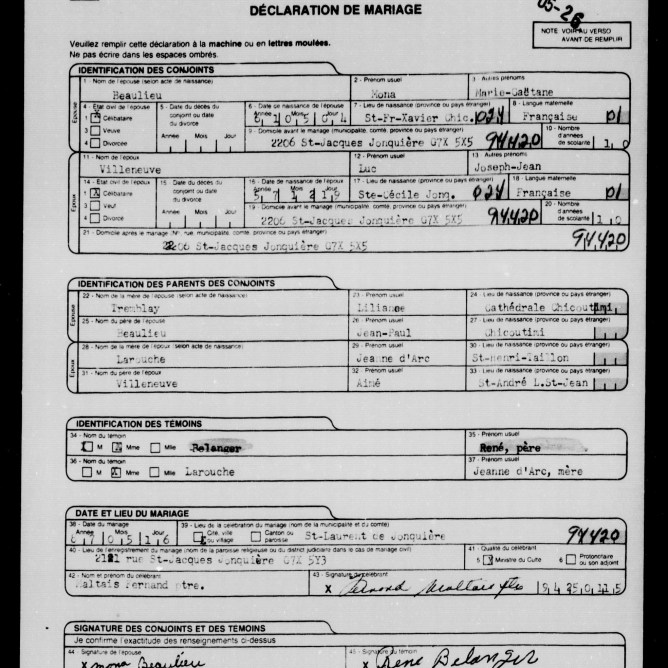 DÉCLARATION DE MARIAGE
05-26
NOTE VOIR AU VERSO
AVANT DE REMPLIR
Veuillez remplir cette déclaration à la machine ou en lettres moulées.
Ne pas écrire dans les espaces ombrés.
IDENTIFICATION DES CONJOINTS
1 - Nom de l'épouse (selon acte de naissance) 2 - Prénom usuel 3 - Autres prénoms
Beaulieu Mona Marie-Gaëtane
4 - État civil de l'épouse 5 - Date du décès du conjoint ou date du divorce 6 - Date de naissance de l'épouse 7 - Lieu de naissance (province ou pays étranger) 8 - Langue maternelle
1 X Célibataire Année Mois Jour St-Fr-Xavier Chic. 024 Française 01
3 Veuve 9 - Domicile avant le mariage (municipalité, comté, province ou pays étranger) 10 - Nombre d'années de scolarité
4 Divorcée Année Mois Jour 2206 St-Jacques Jonquière G7X 5X5 94420 1 0
11 - Nom de l'époux 12 - Prénom usuel 13 - Autres prénoms
Villeneuve Luc Joseph-Jean
14 - État civil de l'époux 15 - Date du décès du conjoint ou date du divorce 16 - Date de naissance de l'époux 17 - Lieu de naissance (province ou pays étranger) 18 - Langue maternelle
1 X Célibataire Année Mois Jour Ste-Cécile Jonq. 024 Française 01
3 Veuf 19 - Domicile avant le mariage (municipalité, comté, province ou pays étranger) 20 - Nombre d'années de scolarité
4 Divorcé Année Mois Jour 2206 St-Jacques Jonquière G7X 5X5 94420
21 - Domicile après le mariage (Nº, rue, municipalité, comté, province ou pays étranger)
2206 St-Jacques Jonquière G7X 5X5 94420
IDENTIFICATION DES PARENTS DES CONJOINTS
22 - Nom de la mère de l'épouse (selon acte de naissance) 23 - Prénom usuel 24 - Lieu de naissance (province ou pays étranger)
Tremblay Lilianne Cathédrale Chicoutimi,
25 - Nom du père de l'épouse 26 - Prénom usuel 27 - Lieu de naissance (province ou pays étranger)
Beaulieu Jean-Paul Chicoutimi
28 - Nom de la mère de l'époux (selon acte de naissance) 29 - Prénom usuel 30 - Lieu de naissance (province ou pays étranger)
Larouche Jeanne d'Arc St-Henri-Taillon
31 - Nom du père de l'époux 32 - Prénom usuel 33 - Lieu de naissance (province ou pays étranger)
Villeneuve Aimé St-André L.St-Jean
IDENTIFICATION DES TÉMOINS
34 - Nom du témoin 35 - Prénom usuel
M Mme Mlle Belanger René, père
36 - Nom du témoin 37 - Prénom usuel
M X Mme Mlle Larouche Jeanne d'Arc, mère
DATE ET LIEU DU MARIAGE
38 - Date du mariage 39 - Lieu de la célébration du mariage (nom de la municipalité et du comté)
Année Mois Jour Cité, ville ou village Canton ou paroisse St-Laurent de Jonquière 94420
8 7 0 5 1 6
40 - Lieu de l'enregistrement du mariage (nom de la paroisse religieuse ou du district judiciaire dans le cas de mariage civil) 41 - Qualité du célébrant
rue St-Jacques Jonquière G7X 5Y3 5 X Ministre du Culte 6 Protonotaire ou son adjoint
42 - Nom et prénom du célébrant 43 - Signature du célébrant
Maltais Fernand ptre. X Fernand Maltais ptre
SIGNATURE DES CONJOINTS ET DES TÉMOINS
Je confirme l'exactitude des renseignements ci-dessus
44 - Signature de l'épouse 45 - Signature du témoin
x Mona Beaulieu x René Belanger